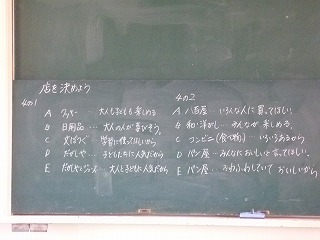 店を決めよう
4の1
A クッキー … 大人も子どもも楽しめる
B 日用品 … 大人の人が喜びそう。
C 文ぼうぐ … 学習に使ってほしいから
D だがしや … 子どもたちに人気だから
E だがしやとジュース … 大人と子どもに人気だから
4の2
A 八百屋 … いろんな人に買ってほしい。
B 和・洋がし … みんなが楽しめる。
C コンビニ(食べ物) … いろいろあるから
D パン屋 … みんなにおいしいと言ってほしい。
E パン屋 … ふわふわしていておいしいから。